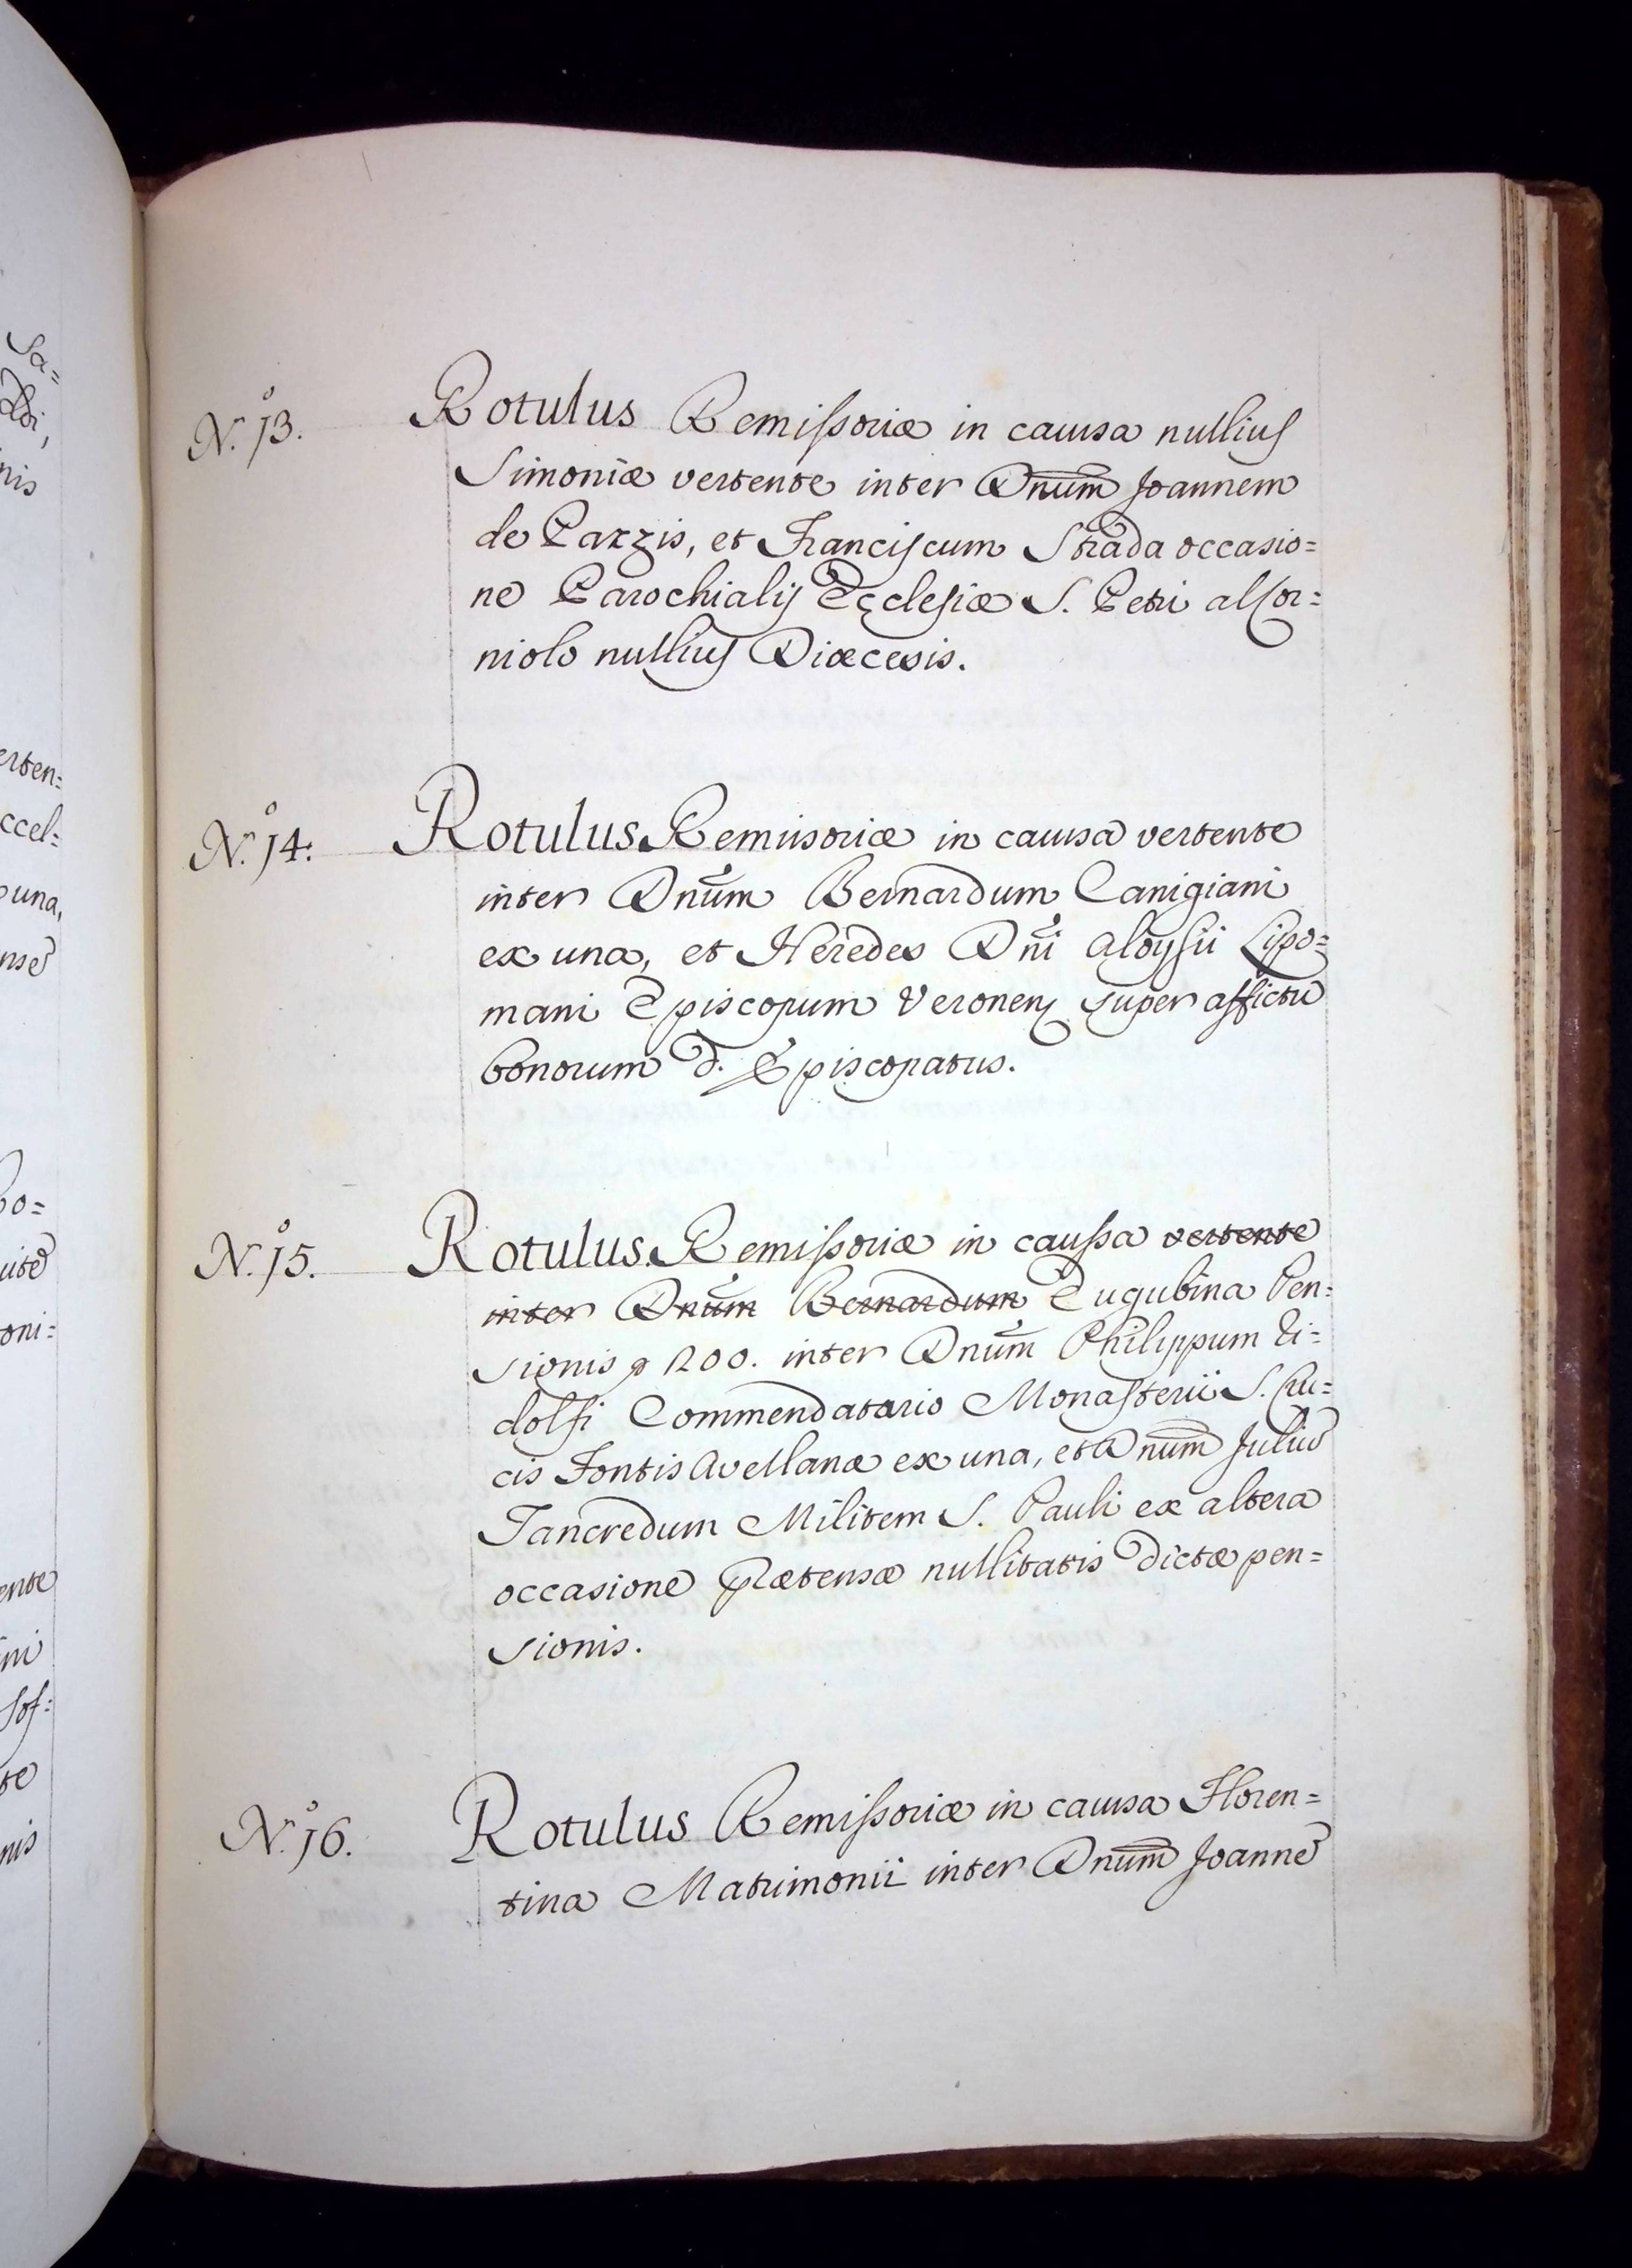 Sa=
nis
erten=
ccel=
una,
oni=
ente
nis
N.º 13. Rotulus Remissoriæ in causa nullius
Simoniæ vertente inter Dnum Joannem
de Pazzis, et Franciscum Strada occasio=
ne Parochialis Ecclesiæ S. Petri al Cor=
niolo nullius Diœcesis.
N.º 14: Rotulus Remissoriæ in causa vertente
inter Dnum Bernardum Canigiani
ex una, et Heredes Dni Aloysii Lipo=
mani Episcopum Veronen super affictu
bonorum d. Episcopatus.
N.º 15. Rotulus Remissoriæ in caussa vertente
inter Dnum Bernardum Eugubina Pen=
sionis 1200. inter Dnum Philippum Ri=
dolfi Commendatario Monasterii S. Cru=
cis Fontis Avellanæ ex una, et Dnum Juliũ
Tancredum Militem S. Pauli ex altera
occasione prætensæ nullitatis dictæ pen=
sionis.
N.º 16. Rotulus Remissoriæ in causa Floren=
tina Matrimonii inter Dnum Joannẽ